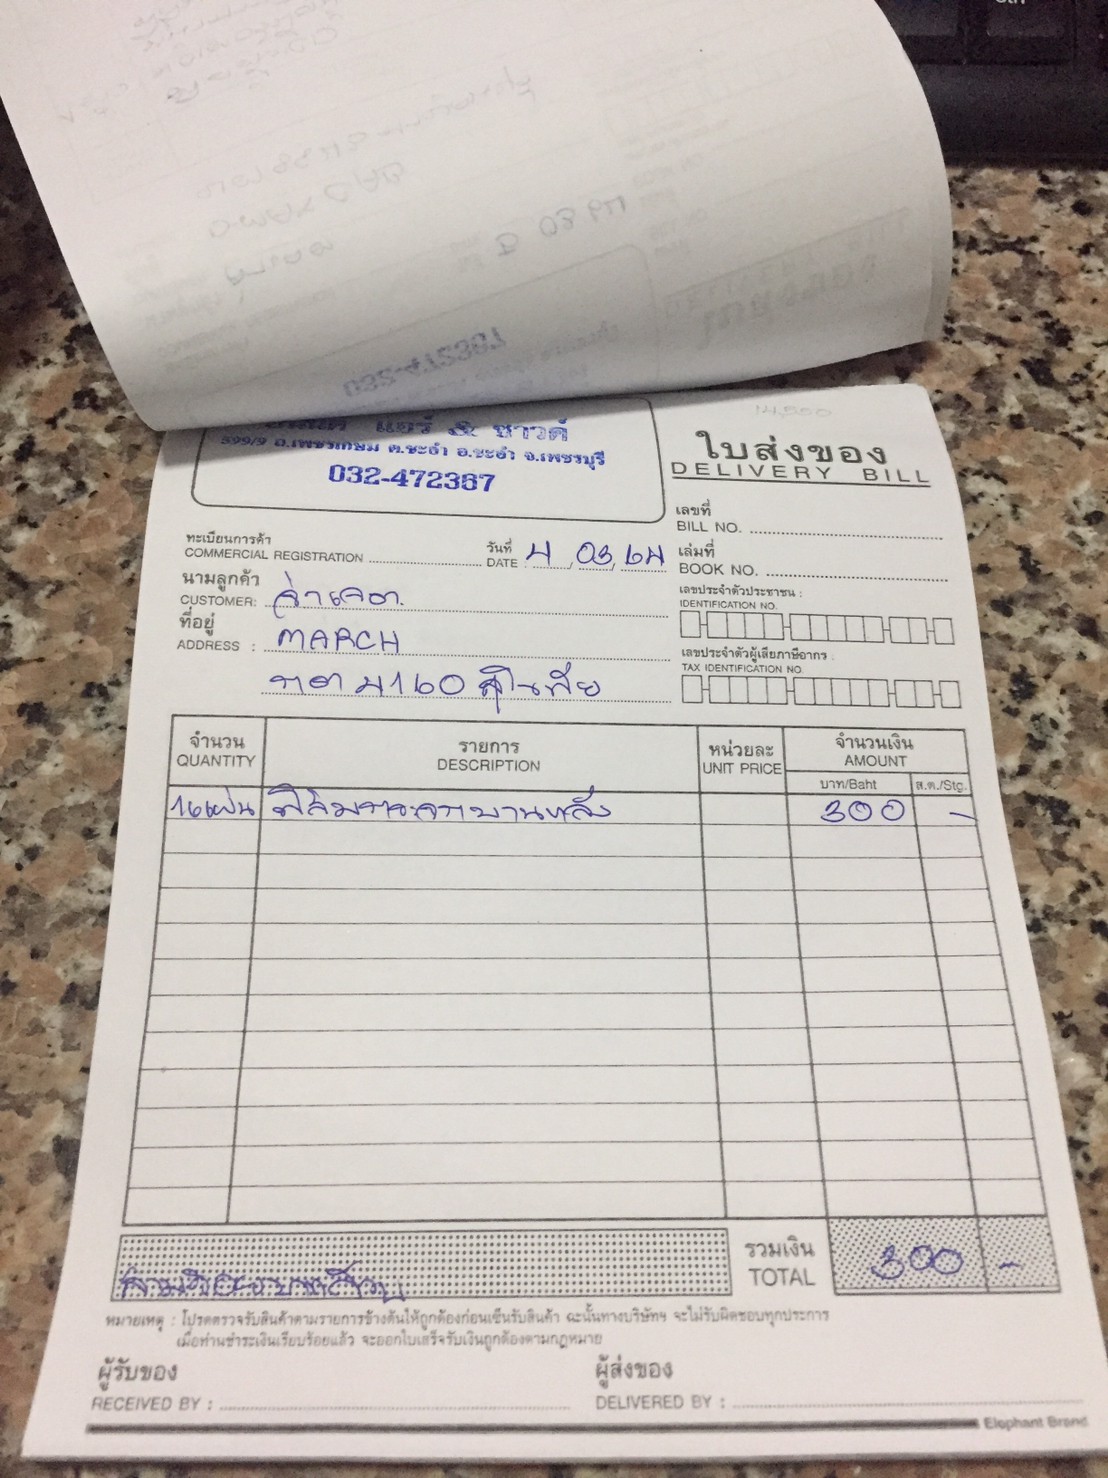 แอร์ & ซาวด์
599/9 ถ.เพชรเกษม ต.ชะอำ อ.ชะอำ จ.เพชรบุรี
032-472367
14,500
ใบส่งของ
DELIVERY BILL
เลขที่
BILL NO.
ทะเบียนการค้า
COMMERCIAL REGISTRATION
วันที่
DATE 4, 03, 64
เล่มที่
BOOK NO.
นามลูกค้า
CUSTOMER: จ่าเจต
ที่อยู่
ADDRESS : MARCH
4160
เลขประจำตัวประชาชน :
IDENTIFICATION NO.
เลขประจำตัวผู้เสียภาษีอากร :
TAX IDENTIFICATION NO.
จำนวน
QUANTITY
รายการ
DESCRIPTION
หน่วยละ
UNIT PRICE
จำนวนเงิน
AMOUNT
บาท/Baht
ส.ต./Stg.
1 แผ่น ฟิล์มกระจกบานหลัง 300 -
สามร้อยบาทถ้วน
รวมเงิน
TOTAL
300 -
หมายเหตุ : โปรดตรวจรับสินค้าตามรายการข้างต้นให้ถูกต้องก่อนเซ็นรับสินค้า ฉะนั้นทางบริษัทฯ จะไม่รับผิดชอบทุกประการ
เมื่อท่านชำระเงินเรียบร้อยแล้ว จะออกใบเสร็จรับเงินถูกต้องตามกฎหมาย
ผู้รับของ
RECEIVED BY :
ผู้ส่งของ
DELIVERED BY :
Elephant Brand